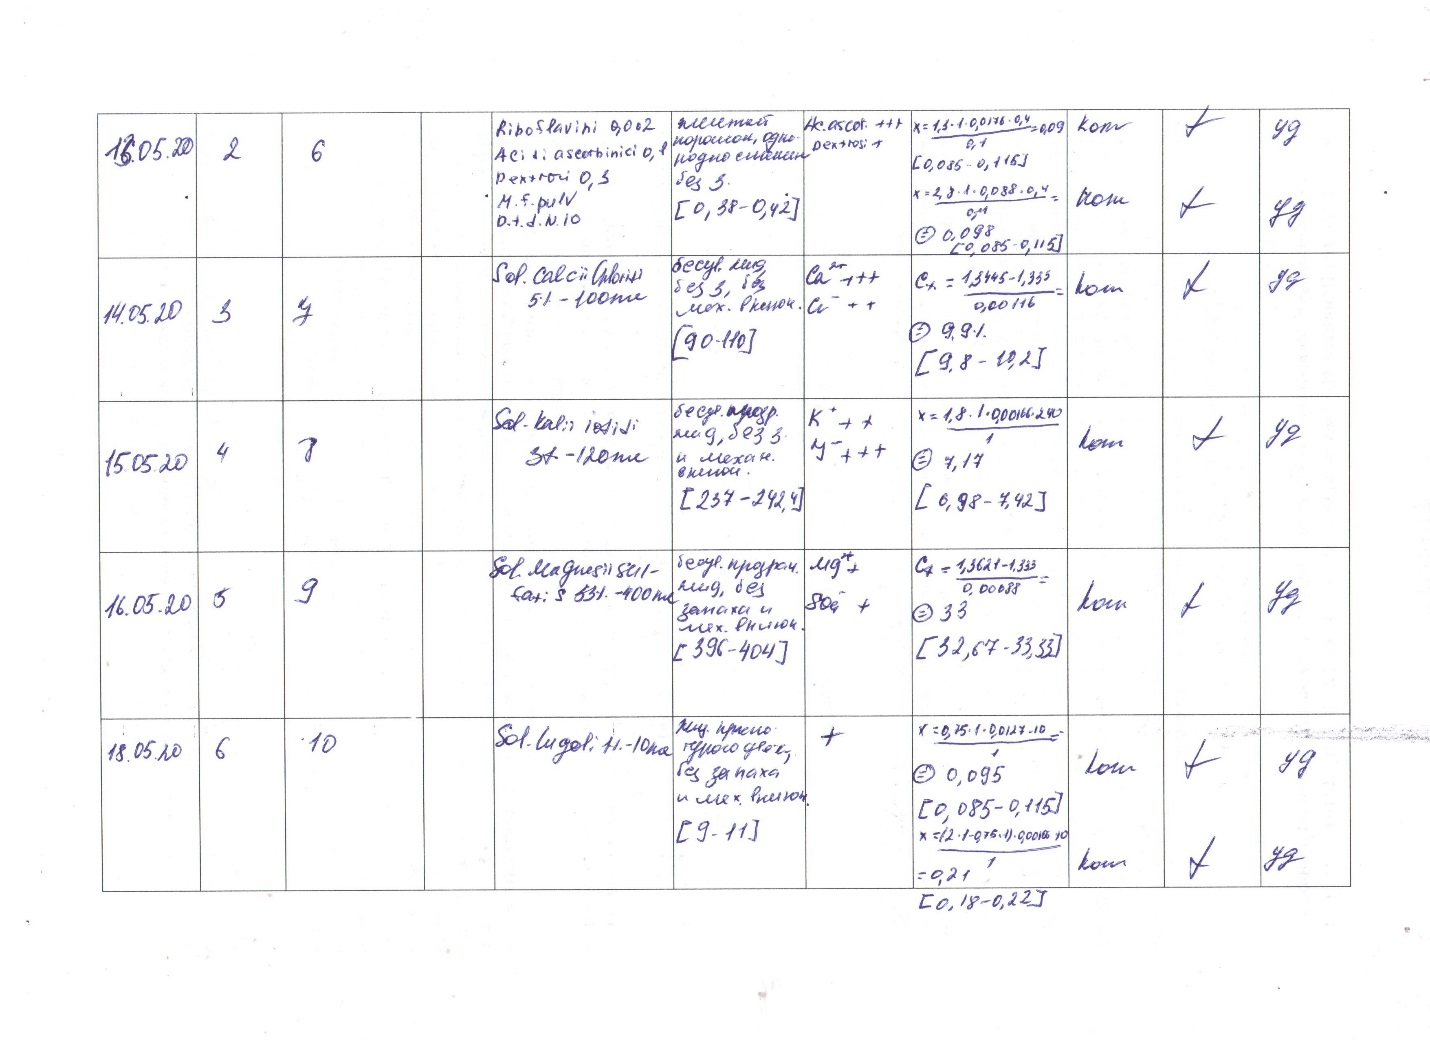 13.05.20
2
6
Riboflavini 0,002
Acidi ascorbinici 0,1
Dextrosi 0,3
M.f. pulv
D.t.d. N. 10
порошок, одно-
родно смешан
без З.
[0,38-0,42]
Ac. ascor. +++
Dextrosi +
x = 1,3·1·0,0176·0,4 = 0,09
0,1
[0,085-0,115]
x = 2,8·1·0,088·0,4 =
= 0,098
[0,085-0,115]
кот
кот
+
+
уд
уд
14.05.20
3
7
Sol. Calcii Chloridi
5% - 100ml
бесцв. жид,
без З, без
мех. включ.
[90-110]
Ca²⁺ +++
Cl⁻ ++
Cx = 1,3445-1,333 =
0,00116
= 9,9%
[9,8-10,2]
кот
+
уд
15.05.20
4
8
Sol. Kalii iodidi
3% - 120ml
бесцв. прозр.
жид, без З.
и механ.
включ.
[237-242,4]
K⁺ ++
J⁻ +++
x = 1,8·1·0,00166·240
1
= 7,17
[6,98-7,42]
кот
+
уд
16.05.20
5
9
Sol. Magnesii Sul-
fatis 33% - 400ml
бесцв. прозрач.
жид, без
запаха и
мех. включ.
[396-404]
Mg²⁺ +
SO₄⁻ +
Cx = 1,3621-1,333 =
0,00088
= 33
[32,67-33,33]
кот
+
уд
18.05.20
6
10
Sol. Lugoli
-10ml
жид. красно-
бурого цвета,
без запаха
и мех. включ.
[9-11]
+
x = 0,75·1·0,0127·10 =
1
= 0,095
[0,085-0,115]
x = (2·1-0,75·1)·0,00166·10
1
= 0,21
[0,18-0,22]
кот
кот
+
+
уд
уд